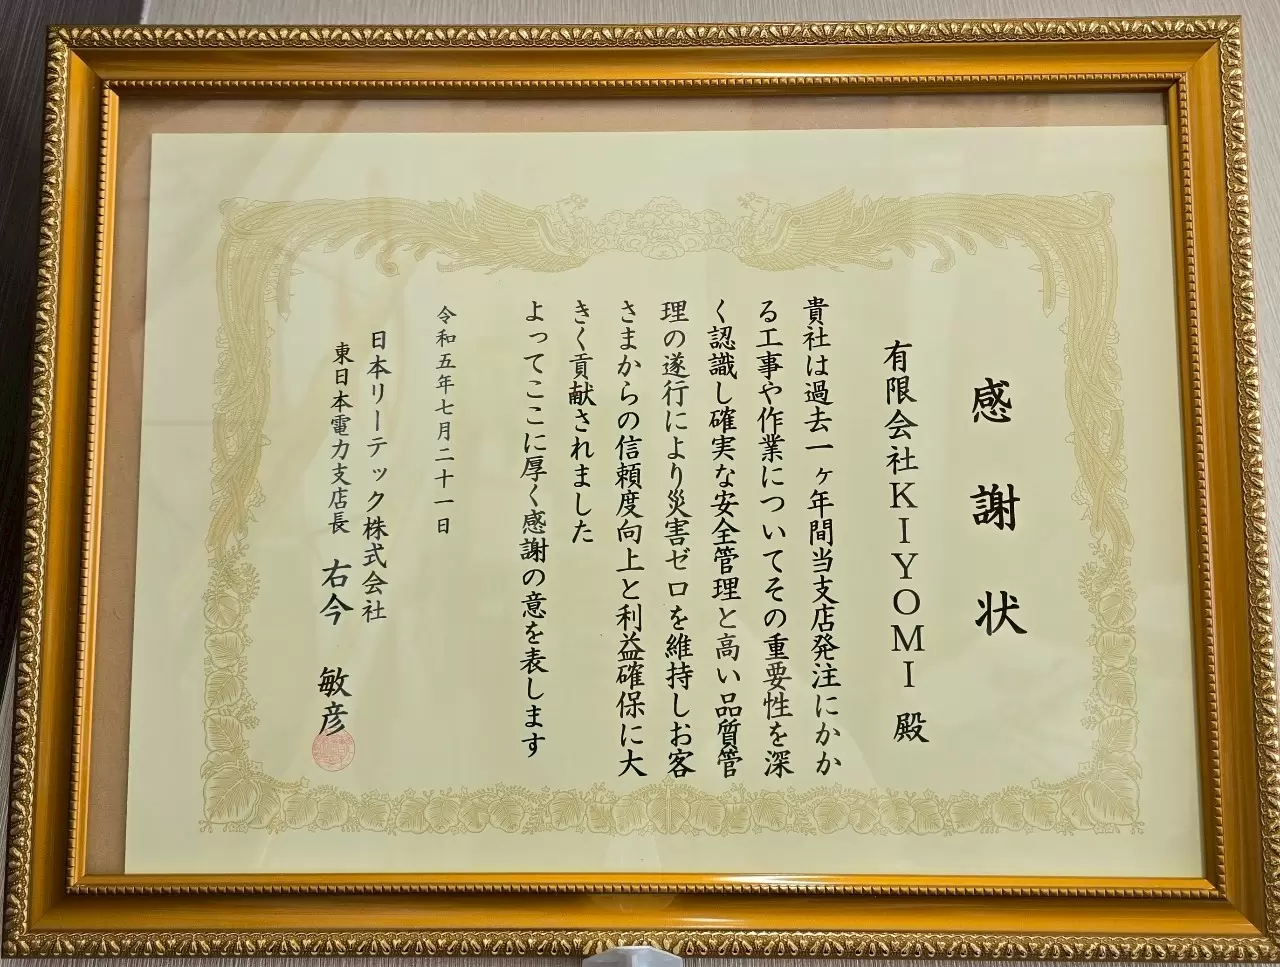 感謝状
有限会社KIYOMI殿
貴社は過去一ヶ年間当支店発注にかか
る工事や作業についてその重要性を深
く認識し確実な安全管理と高い品質管
理の遂行により災害ゼロを維持しお客
さまからの信頼度向上と利益確保に大
きく貢献されました
よってここに厚く感謝の意を表します
令和五年七月二十一日
日本リーテック株式会社
東日本電力支店長 右今 敏彦